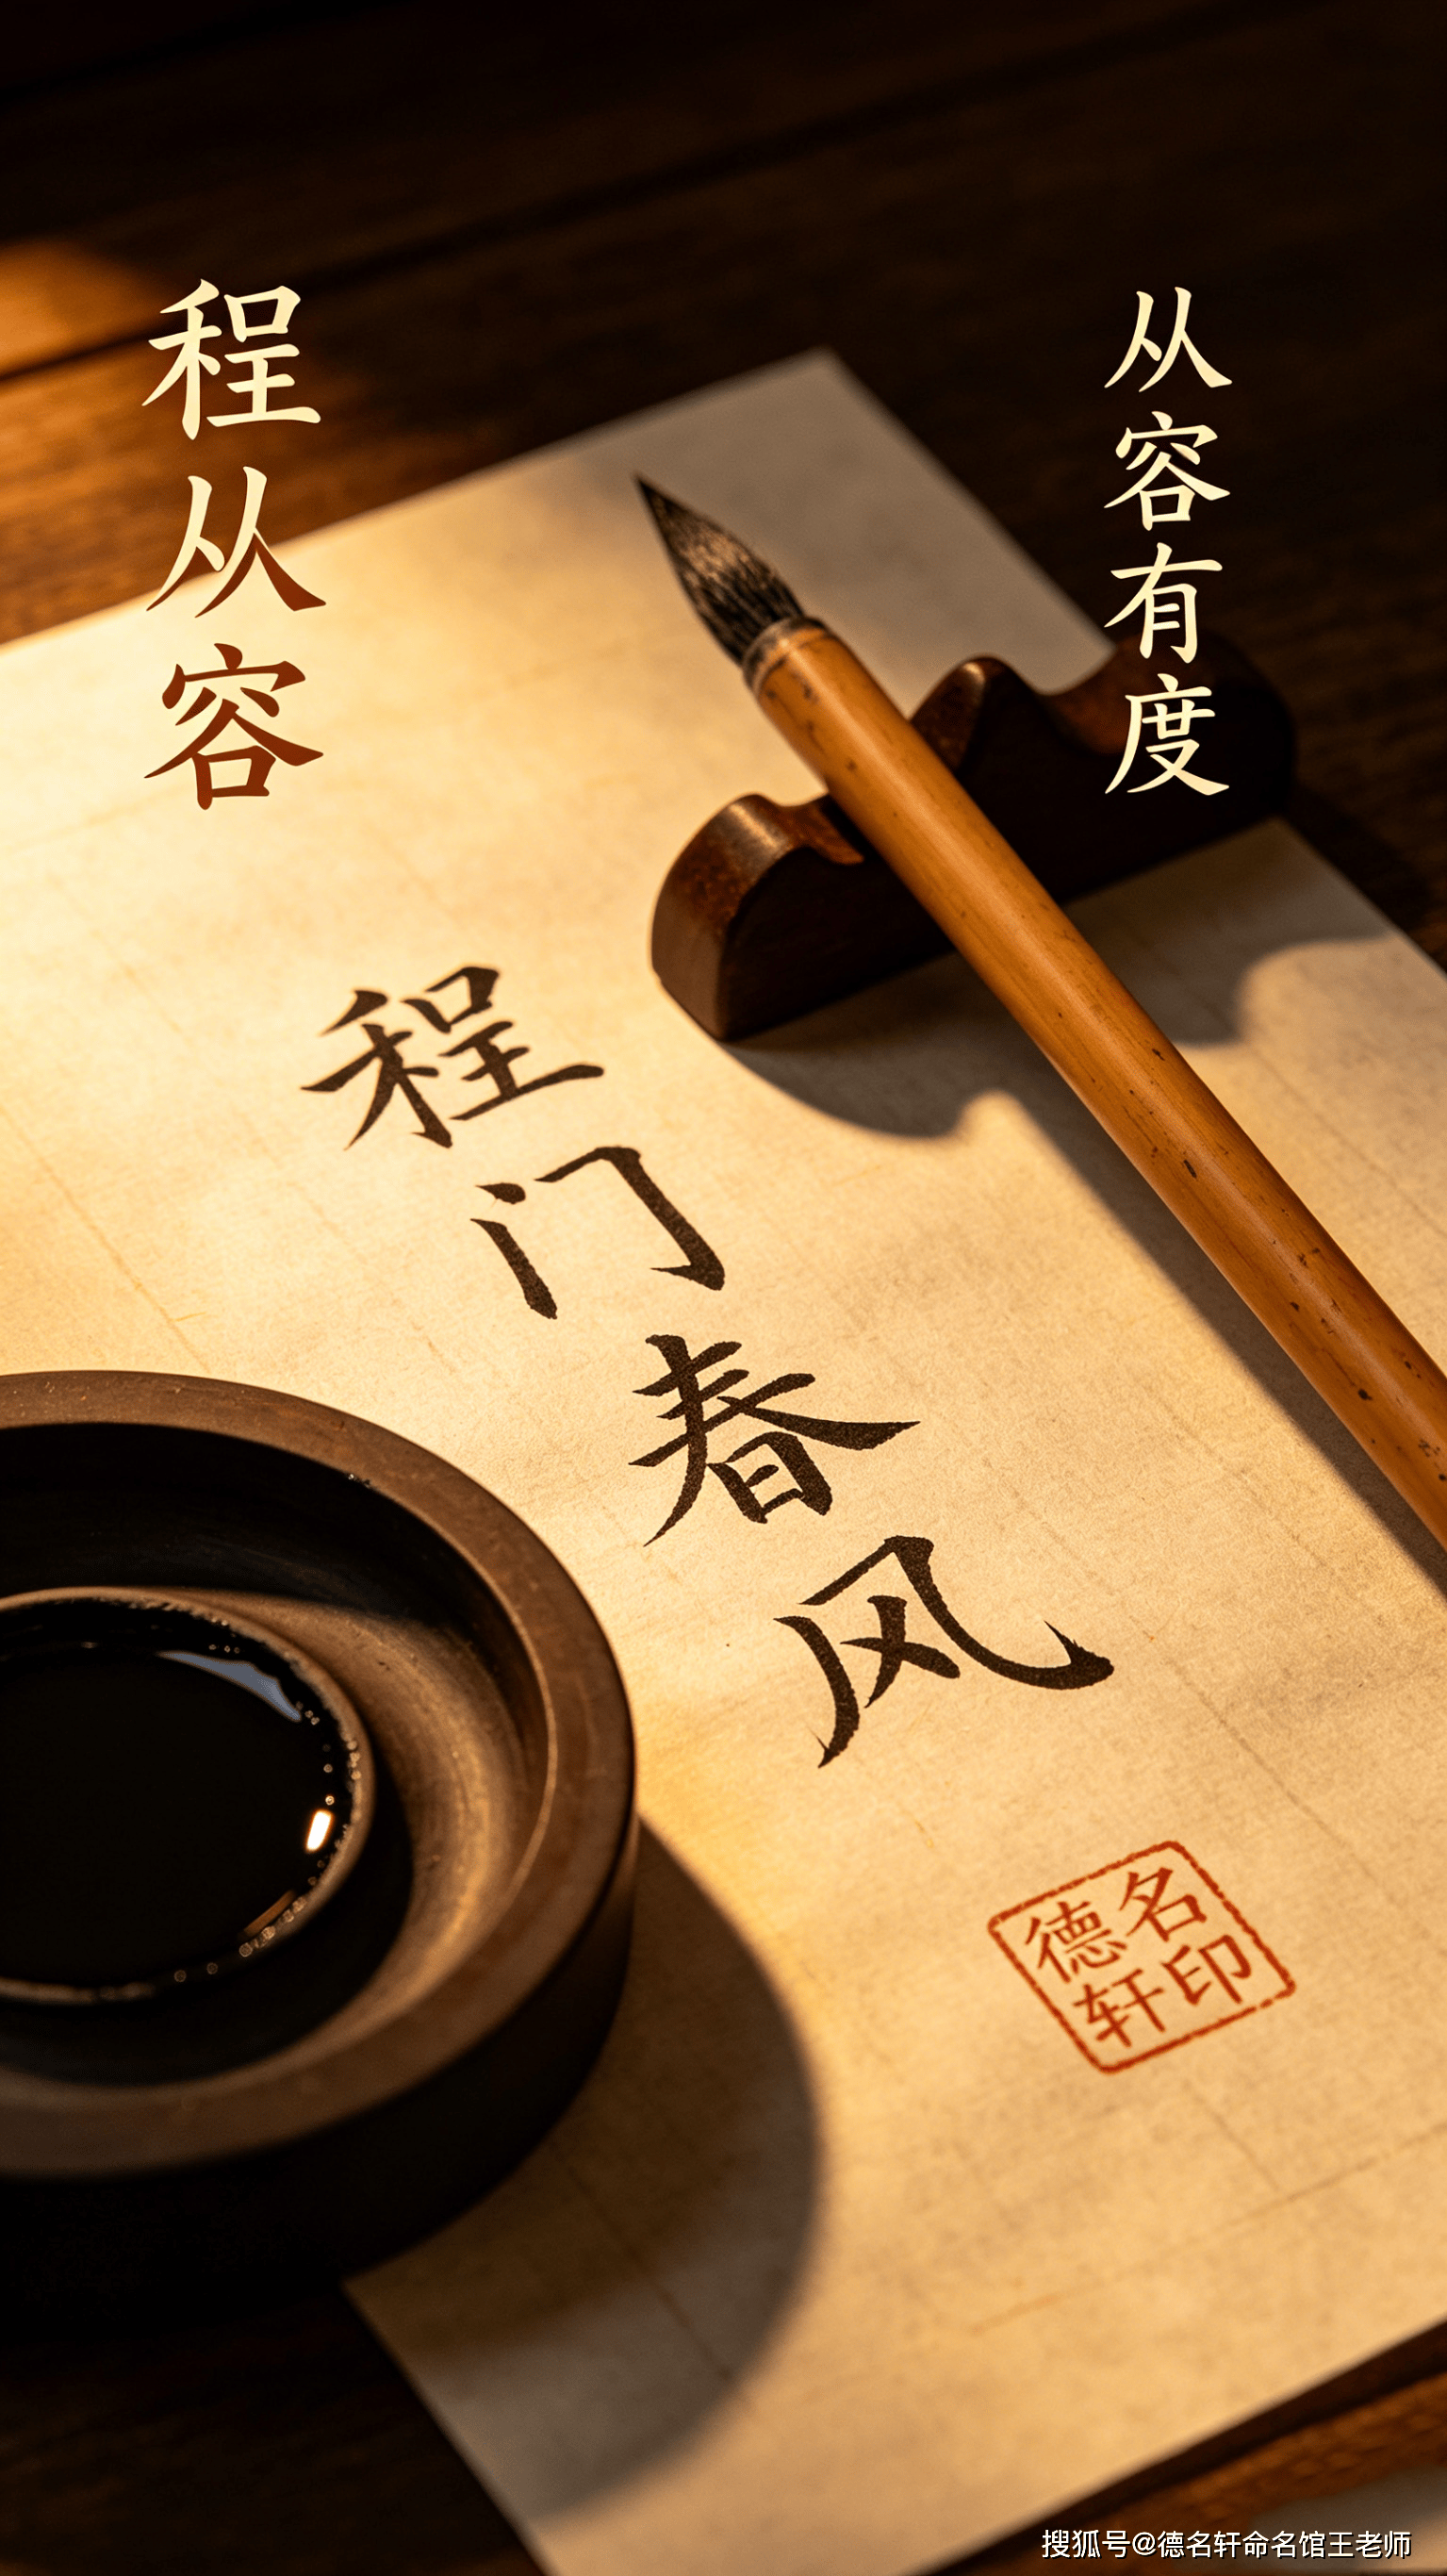 程从容
从容有度
程门春风
德名
轩印
搜狐号@德名轩命名馆王老师